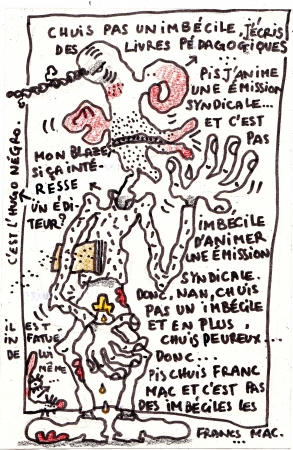 CHUIS PAS UN IMBÉCILE, J'ÉCRIS
DES LIVRES PÉDAGOGIQUES
PIS J'ANIME
UNE ÉMISSION
SYNDICALE...
ET C'EST
PAS
IMBÉCILE
D'ANIMER
UNE ÉMISSION
SYNDICALE.
DONC, NAN, CHUIS
PAS UN IMBÉGILE
ET EN PLUS,
CHUIS PEUREUX...
DONC...
PIS CHUIS FRANC
MAC ET C'EST PAS
DES IMBÉGILES LES
FRANCS MAC.
MON BLAZE,
SI ÇA INTÉ-
RESSE
UN ÉDI-
TEUR?
C'EST L'HUGO NÉGRO.
IL EST
INFATUÉ
DE LUI
MÊME